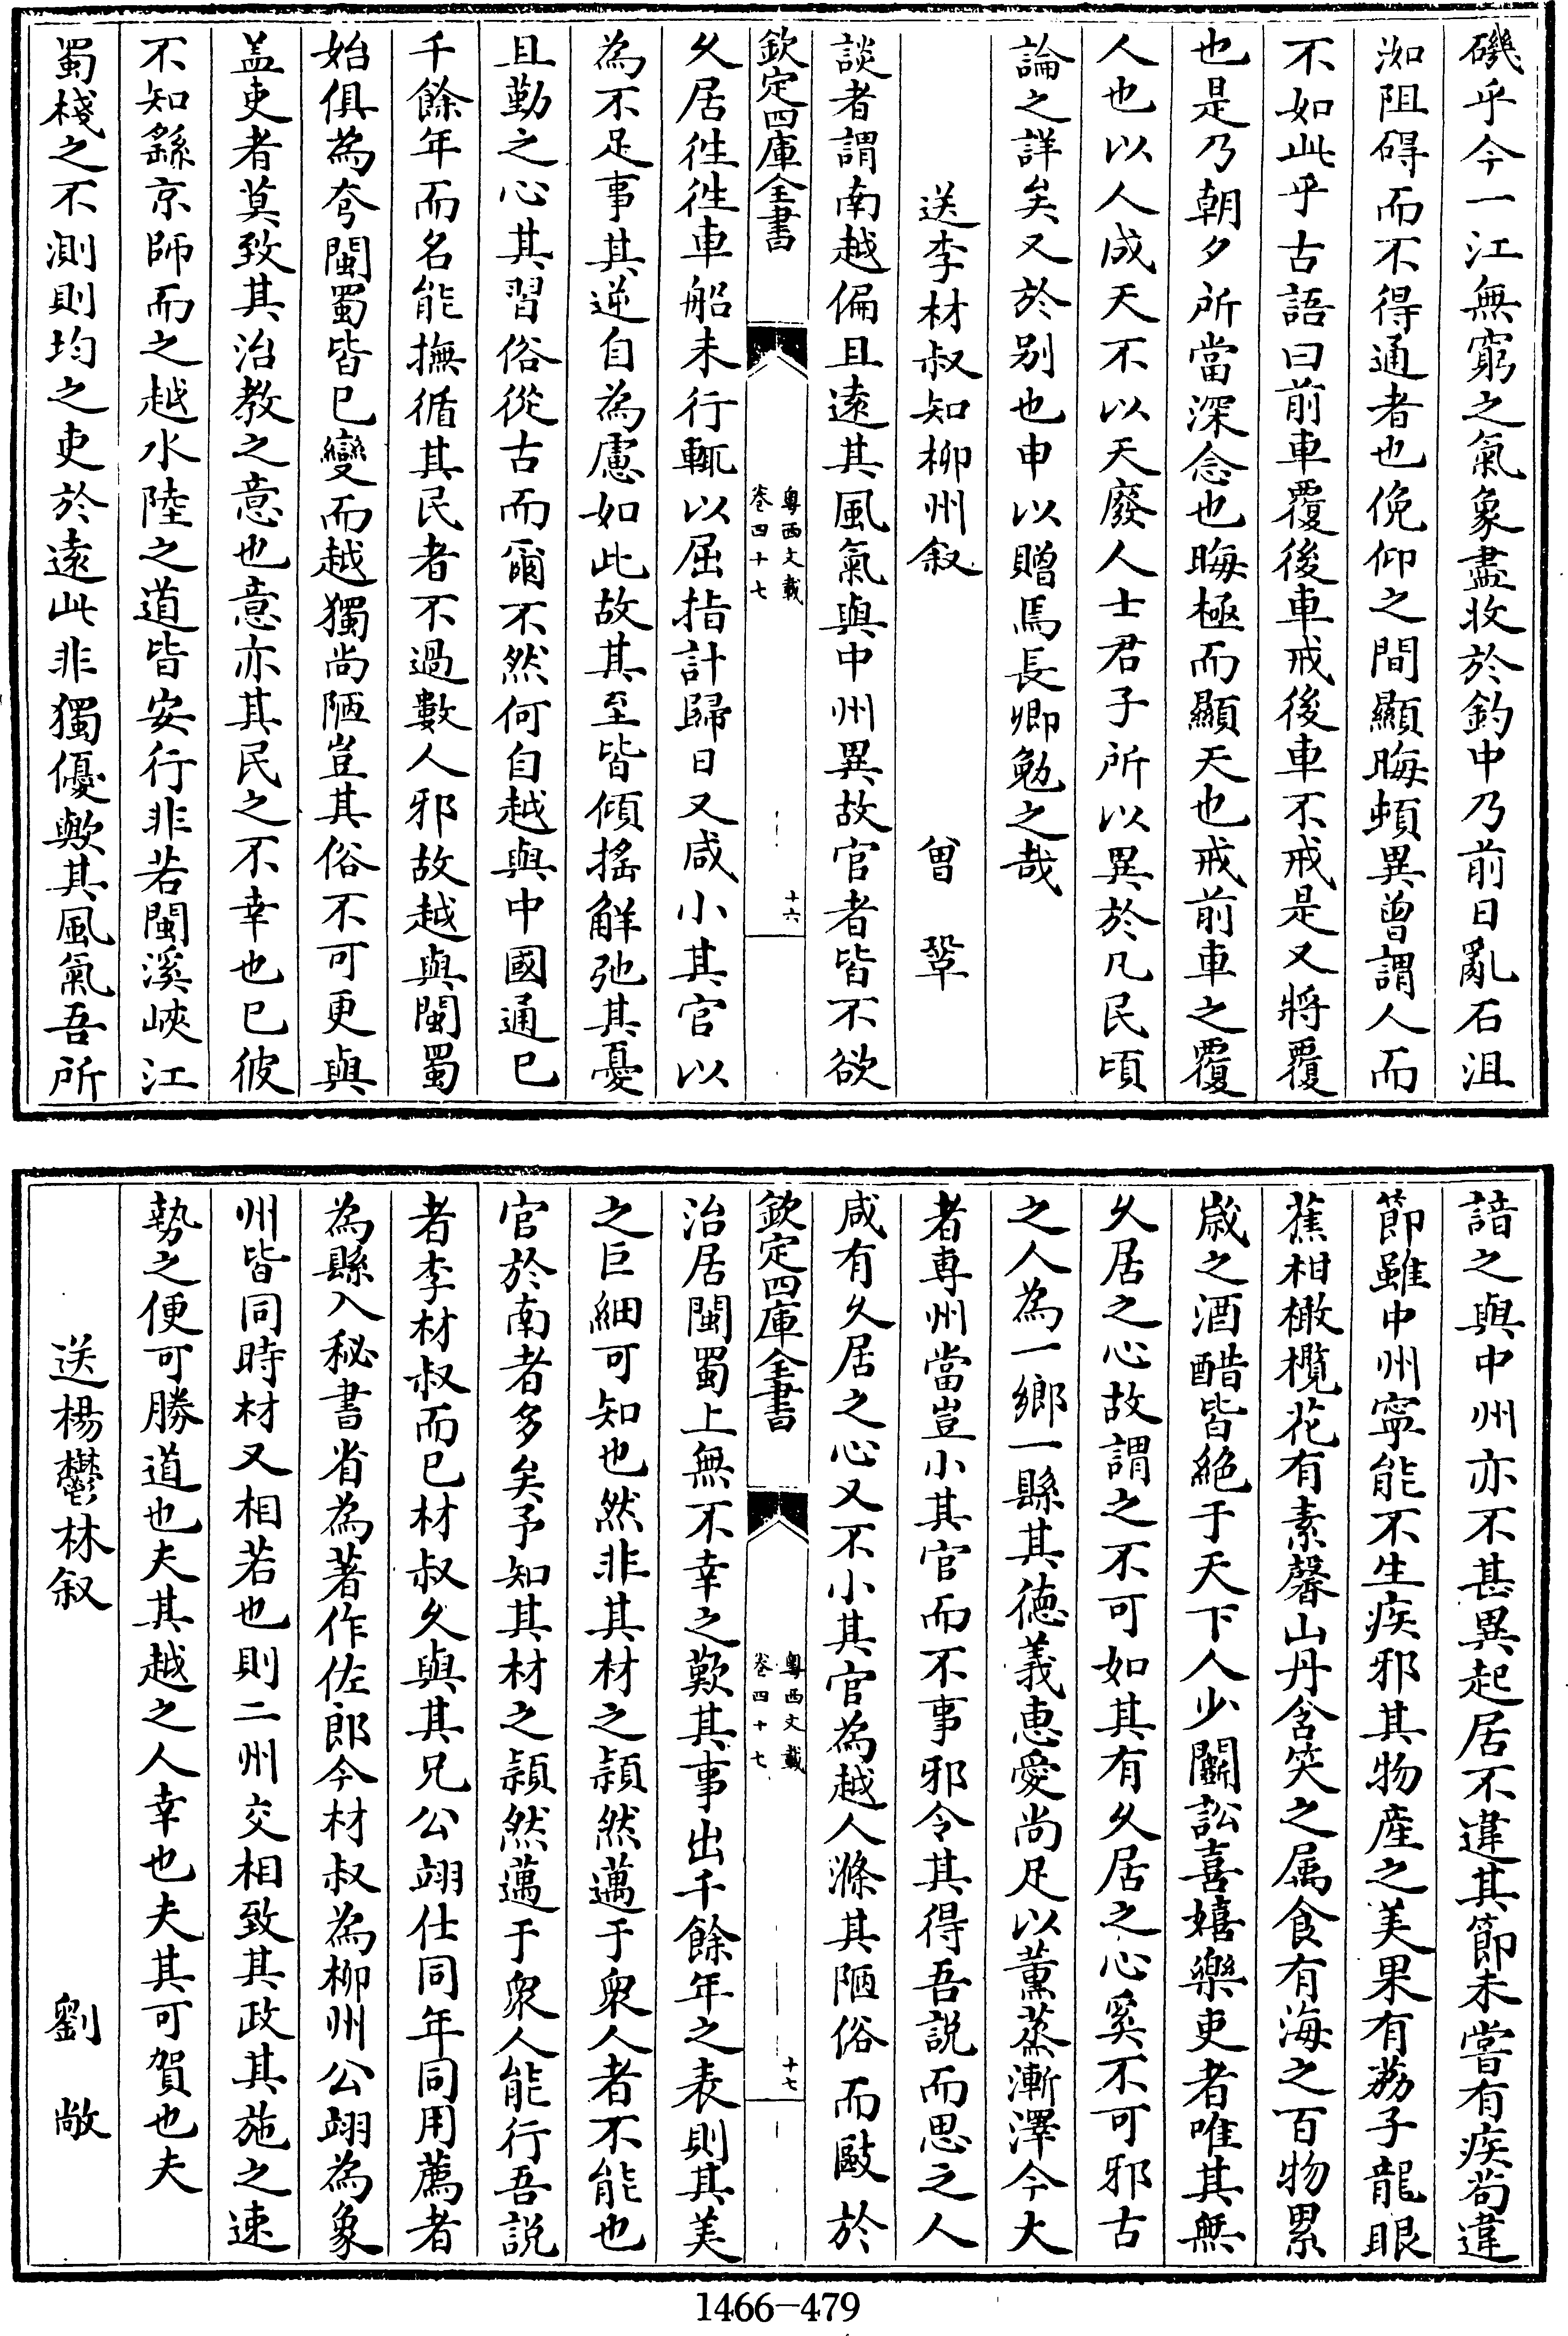 磯乎今一江無窮之氣象盡收於釣中乃前日亂石沮
洳阻碍而不得通者也俛仰之間顯晦頓異曾謂人而
不如此乎古語曰前車覆後車戒後車不戒是又將覆
也是乃朝夕所當深念也晦極而顯天也戒前車之覆
人也以人成天不以天廢人士君子所以異於凡民頃
論之詳矣又於別也申以贈焉長卿勉之哉
送李材叔知柳州叙 曾鞏
談者謂南越偏且遠其風氣與中州異故官者皆不欲
欽定四庫全書 粵西文載 卷四十七 十六
久居徃徃車船未行輒以屈指計歸日又咸小其官以
為不足事其逆自為慮如此故其至皆傾搖觧弛其憂
且勤之心其習俗從古而爾不然何自越與中國通已
千餘年而名能撫循其民者不過數人邪故越與閩蜀
始俱為夸閩蜀皆已變而越獨尚陋豈其俗不可更與
盖吏者莫致其治教之意也意亦其民之不幸也已彼
不知繇京師而之越水陸之道皆安行非若閩溪峽江
蜀棧之不測則均之吏於遠此非獨優歟其風氣吾所
諳之與中州亦不甚異起居不違其節未嘗有疾苟違
節雖中州寧能不生疾邪其物產之美果有荔子龍眼
蕉柑橄欖花有素馨山丹含笑之属食有海之百物累
歲之酒醋皆絕于天下人少鬭訟喜嬉樂吏者唯其無
久居之心故謂之不可如其有久居之心奚不可邪古
之人為一鄉一縣其徳義惠愛尚足以薰蒸漸澤今大
者專州當豈小其官而不事邪令其得吾說而思之人
咸有久居之心又不小其官為越人滌其陋俗而敺於
欽定四庫全書 粵西文載 卷四十七 十七
治居閩蜀上無不幸之歎其事出千餘年之表則其美
之巨細可知也然非其材之頴然邁于衆人者不能也
官於南者多矣予知其材之頴然邁于衆人能行吾說
者李材叔而已材叔久與其兄公翊仕同年同用薦者
為縣入秘書省為著作佐郎今材叔為柳州公翊為象
州皆同時材又相若也則二州交相致其政其施之速
勢之便可勝道也夫其越之人幸也夫其可賀也夫
送楊鬱林叙 劉敞
1466-479